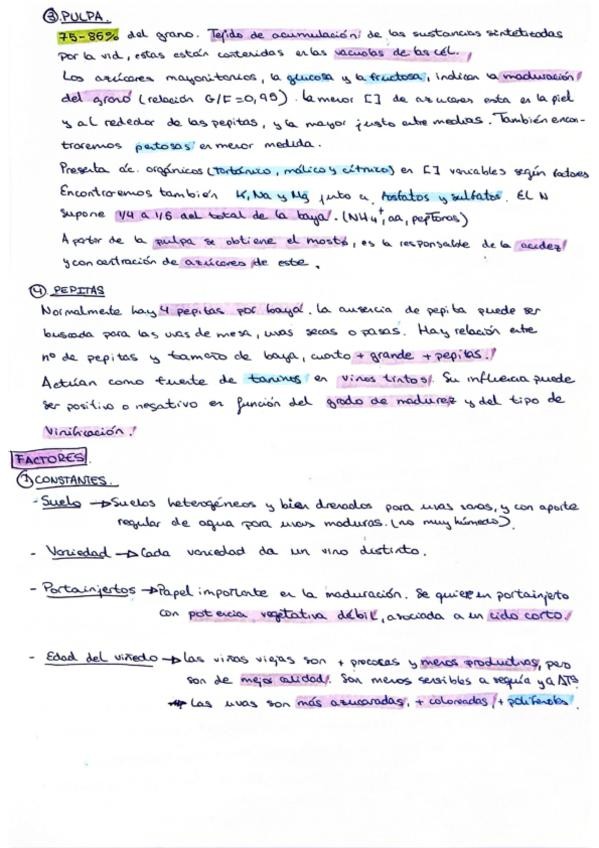 ③ PULPA.
75-85% del grano. Tejido de acumulación de las sustancias sintetizadas
por la vid, estas están contenidas en las vacuolas de las cél.
Los azúcares mayoritarios, la glucosa y la fructosa, indican la maduración
del grano (relación G/F=0,95). La menor [] de azucares esta en la piel
y al rededor de las pepitas, y la mayor justo entre medias. También encon-
traremos pectosas en menor medida.
Presenta ác. orgánicos (tartárico, málico y cítrico) en [] variables según factores
Encontraremos también K, Na y Mg junto a fosfatos y sulfatos. El N
supone 1/4 a 1/6 del total de la baya. (NH4+, aa, peptonas)
A partir de la pulpa se obtiene el mosto, es la responsable de la acidez
y concentración de azúcares de este.
④ PEPITAS
Normalmente hay 4 pepitas por baya. La ausencia de pepita puede ser
buscada para las uvas de mesa, uvas secas o pasas. Hay relación entre
nº de pepitas y tamaño de baya, cuanto + grande + pepitas.
Actúan como fuente de taninos en vinos tintos. Su influencia puede
ser positiva o negativa en función del grado de madurez y del tipo de
vinificación.
FACTORES
① CONSTANTES.
- Suelo → Suelos heterogéneos y bien drenados para uvas sanas, y con aporte
regular de agua para uvas maduras. (no muy húmedo).
- Variedad → Cada variedad da un vino distinto.
- Portainjertos → Papel importante en la maduración. Se quiere un portainjerto
con potencia vegetativa débil, asociada a un ciclo corto.
- Edad del viñedo → Las viñas viejas son + precoces y menos productivas, pero
son de mejor calidad. Son menos sensibles a sequía y a ΔTª
→ Las uvas son más azucaradas, + coloreadas, + polifenoles.